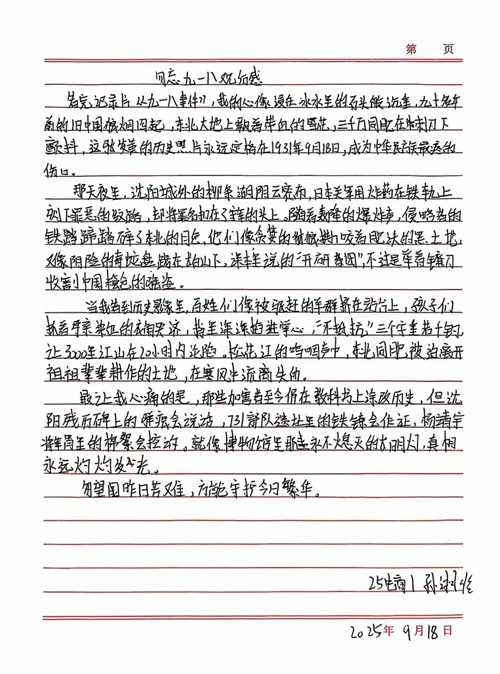 第 页
勿忘九一八观后感
看完记录片《九一八事件》，我的心像浸在冰水里的石头般沉重，九十多年
前的旧中国狼烟四起，东北大地上飘着带血的雪花，三千万同胞在刺刀下
颤抖，这张发黄的历史照片永远定格在1931年9月18日，成为中华民族最痛的
伤口。
那天夜里，沈阳城外的柳条湖阴云密布，日本关东军用炸药在铁轨上
埋下罪恶的 ，却将罪名扣在了 的头上。随着轰隆的爆炸声，侵略者的
铁蹄踏碎了东北的月色，他们像贪婪的豺狼撕咬着肥沃的黑土地，
又像阴险的毒蛇盘踞在白山下。 说的"开研 "不过是举着镰刀
收割中国 的 。
当我看到历史影像里，百姓们像被驱赶的羊群挤在站台上，孩子们
抓着母亲 的衣角哭泣， 深深的 心，"不抵抗"三个字重若千钧，
让3000里江山在20小时内沦陷。松花江的呜咽声中，东北同胞被迫离开
祖祖辈辈耕作的土地，在寒风中流离失所。
最让我心痛的是，那些加害者至今仍在教科书上涂改历史，但沈
阳残历碑上的弹痕会说话，731部队遗址里的铁镣会作证，杨靖宇
将军胃里的棉絮会控诉。就像博物馆里那盏永不熄灭的 灯，真相
永远灼灼发光。
勿忘国昨日苦难，方能守护今日繁华。
25电商1 孙
2025年 9月18日